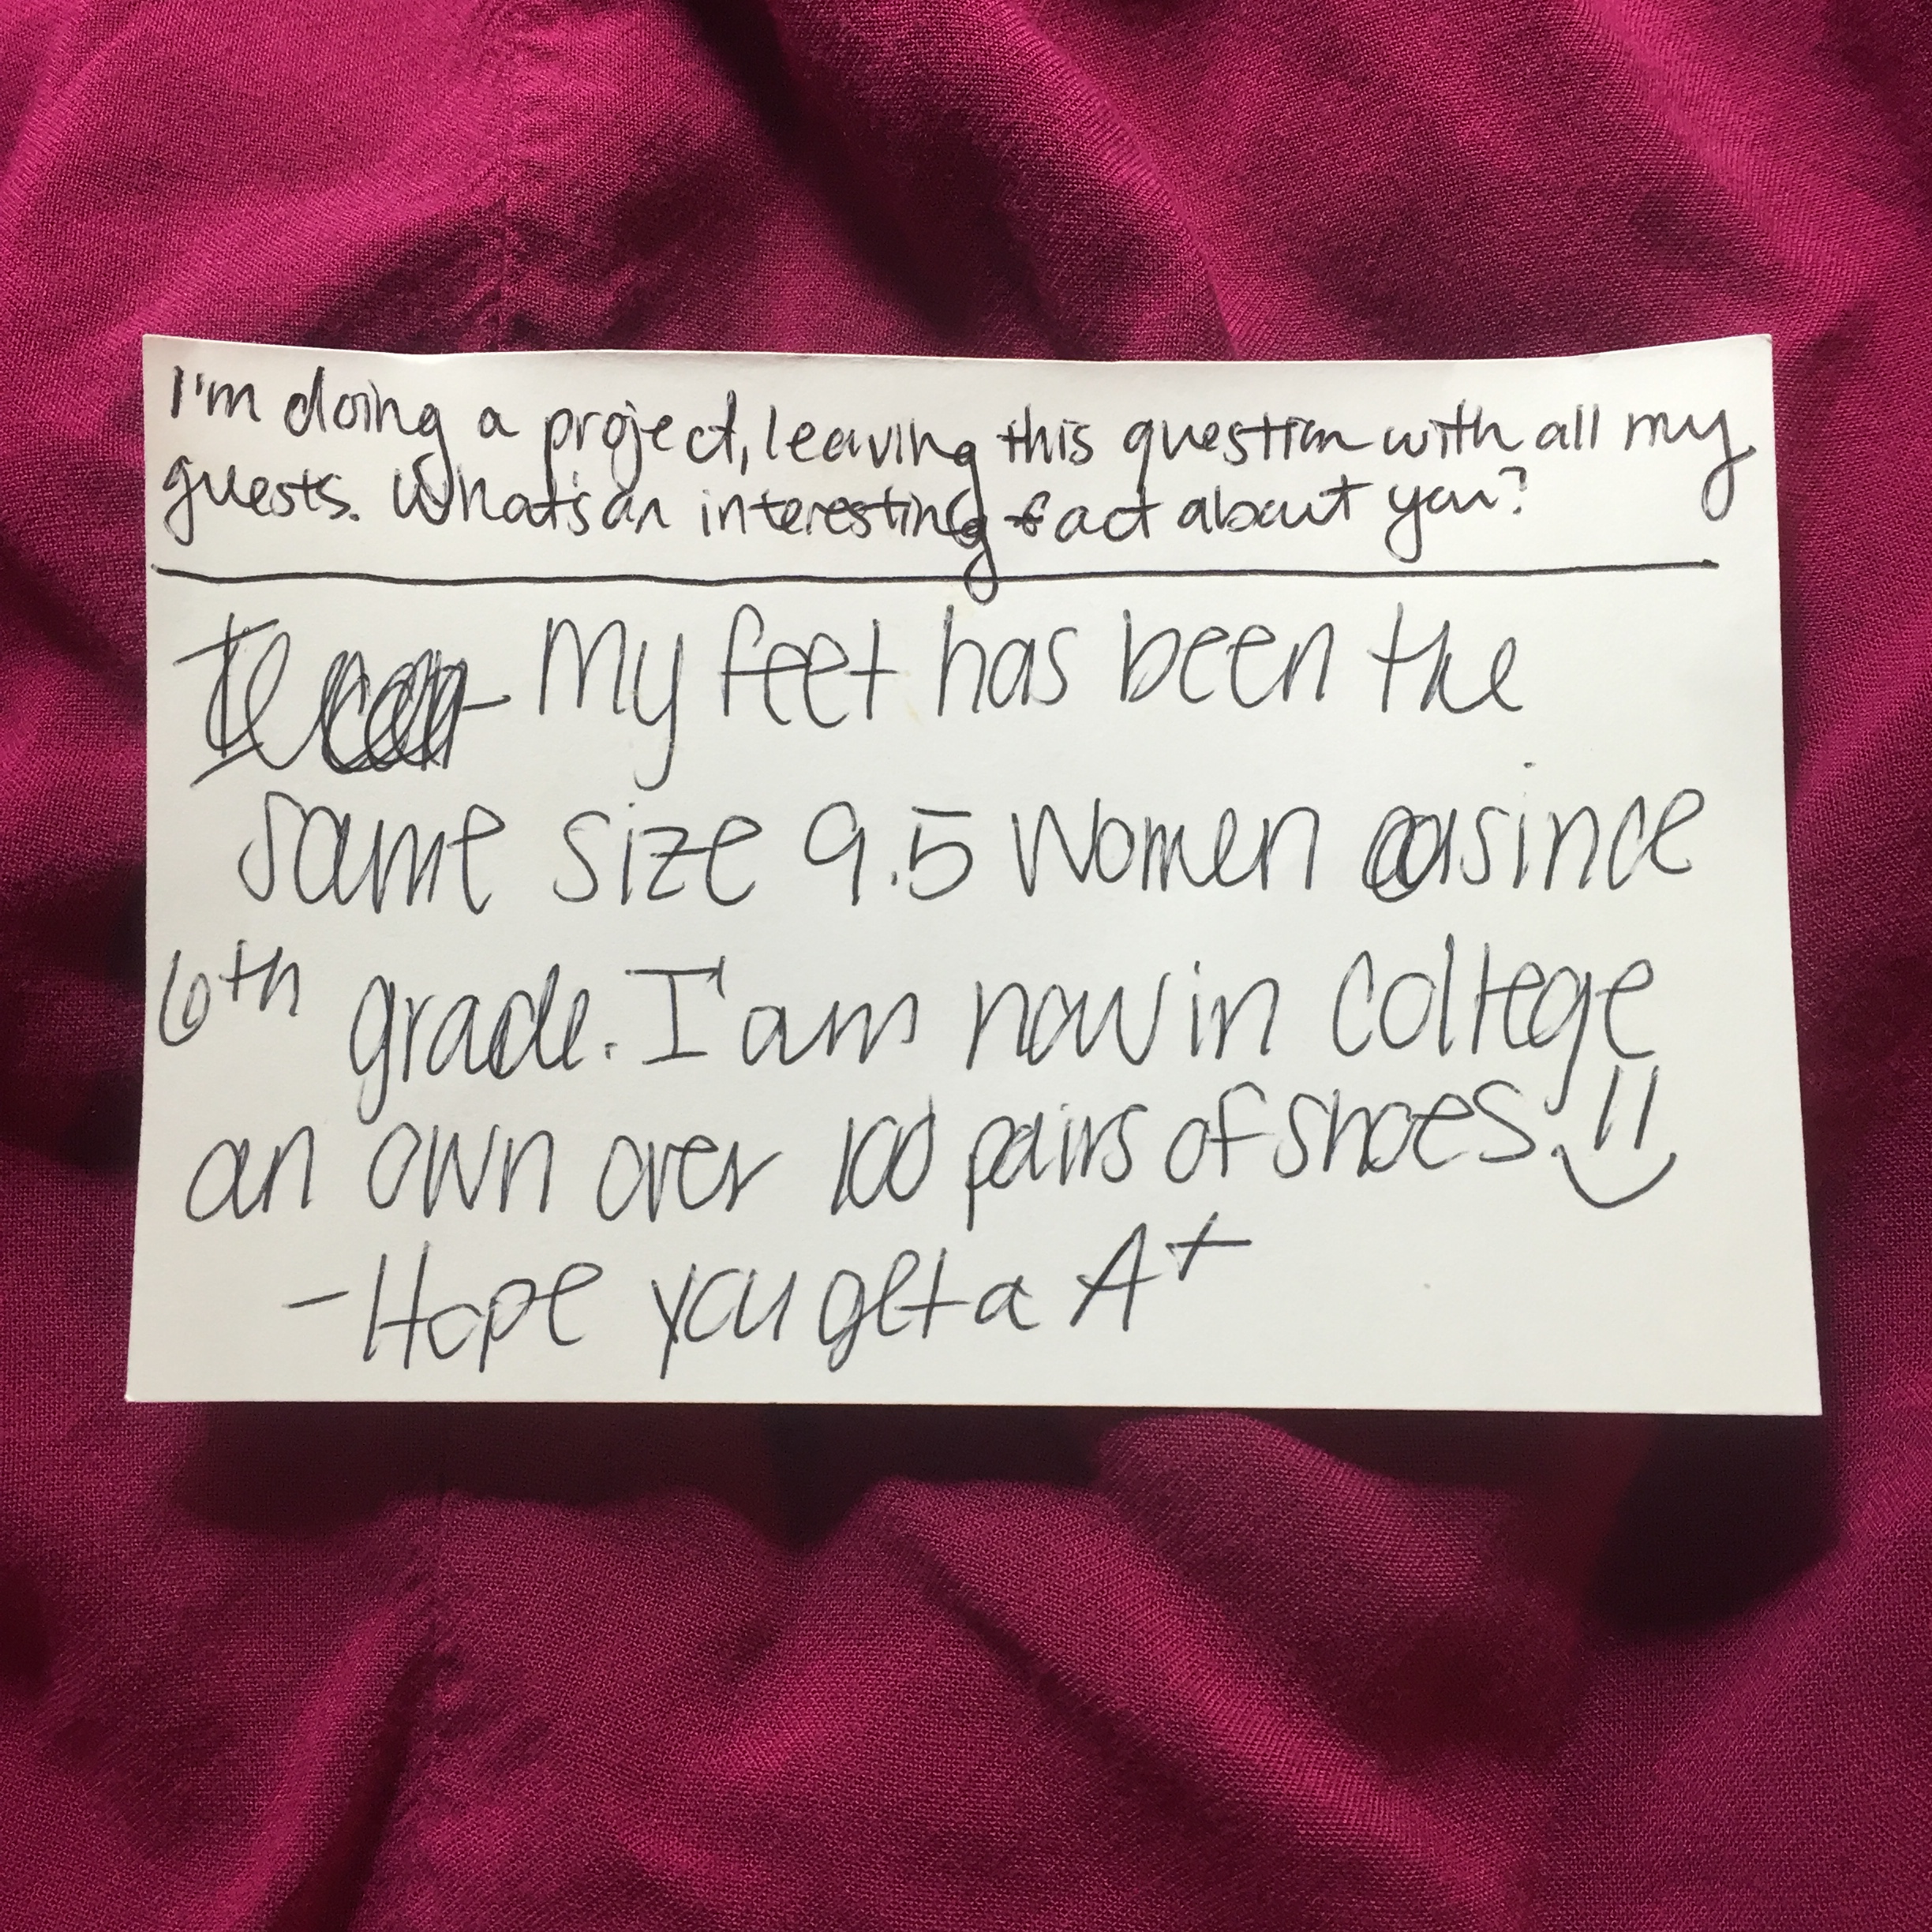 I'm doing a project, leaving this question with all my
guests. What's an interesting fact about you?
My feet has been the
same size 9.5 Women since
6th grade. I am now in college
an own over 100 pairs of shoes.
-Hope you get a A+